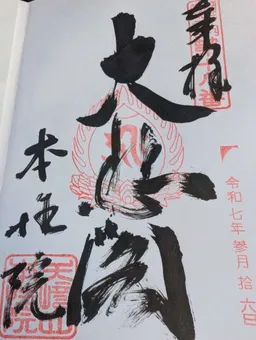 奉拝
大悲閣
令和七年参月拾六日
本
院